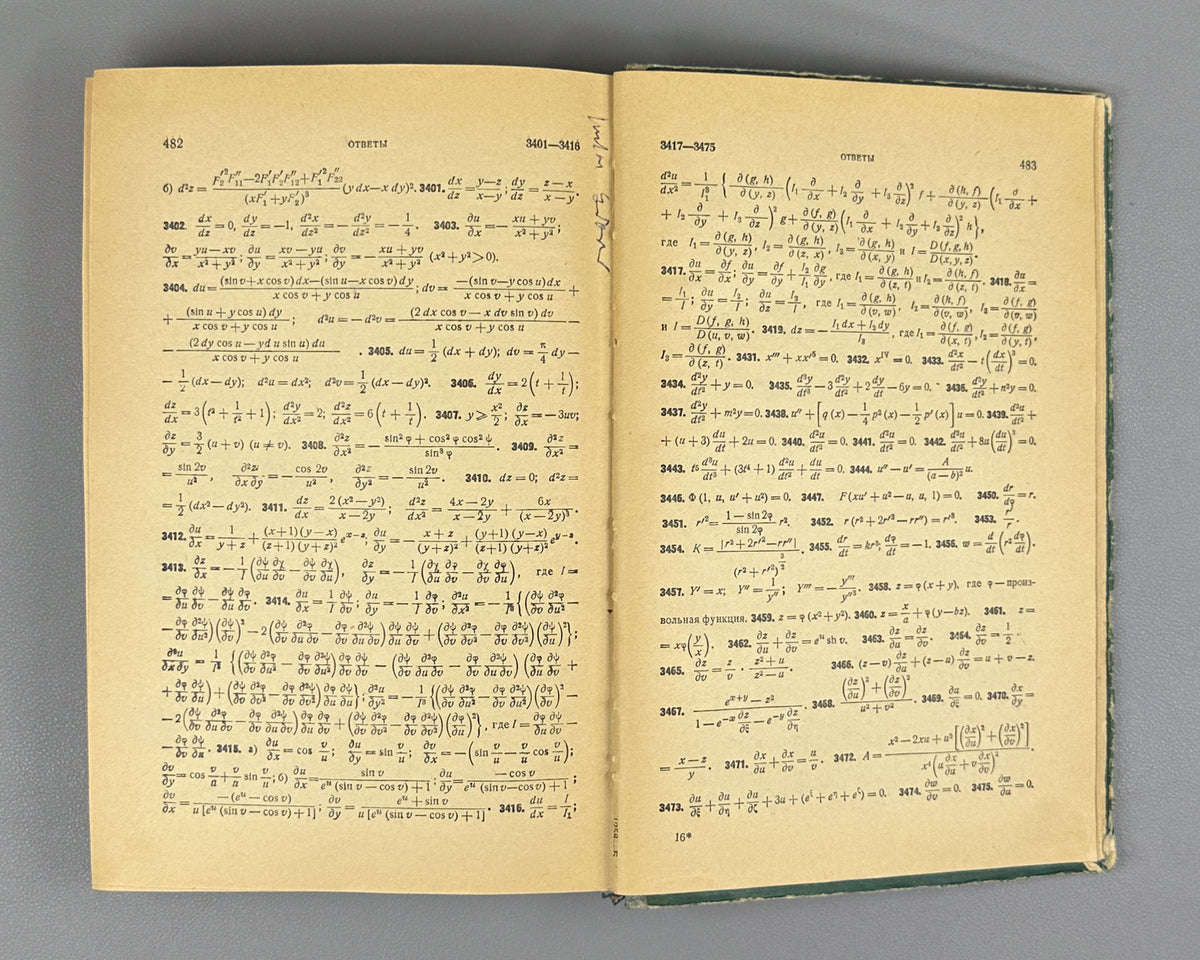 482 ОТВЕТЫ 3401—3416
б) d²z = (F₂′²F₁₁″—2F₁′F₂′F₁₂″+F₁′²F₂₂″)/(xF₁′+yF₂′)³ (y dx—x dy)². 3401. dx/dz = (y—z)/(x—y); dy/dz = (z—x)/(x—y).
3402. dx/dz = 0, dy/dz = —1, d²x/dz² = —d²y/dz² = —1/4. 3403. ∂u/∂x = —(xu+yv)/(x²+y²);
∂v/∂x = (yu—xv)/(x²+y²); ∂u/∂y = (xv—yu)/(x²+y²); ∂v/∂y = —(xu+yv)/(x²+y²) (x²+y²>0).
3404. du = ((sin v+x cos v) dx—(sin u—x cos v) dy)/(x cos v+y cos u); dv = (—(sin v—y cos u) dx)/(x cos v+y cos u) +
+ ((sin u+y cos u) dy)/(x cos v+y cos u); d²u = —d²v = ((2 dx cos v—x dv sin v) dv)/(x cos v+y cos u) —
— ((2 dy cos u—y du sin u) du)/(x cos v+y cos u). 3405. du = 1/2 (dx+dy); dv = π/4 dy—
— 1/2 (dx—dy); d²u = dx²; d²v = 1/2 (dx—dy)². 3406. dy/dx = 2(t+1/t);
dz/dx = 3(t²+1/t²+1); d²y/dx² = 2; d²z/dx² = 6(t+1/t). 3407. y ⩾ x²/2; ∂z/∂x = —3uv;
∂z/∂y = 3/2 (u+v) (u≠v). 3408. ∂²z/∂x² = —(sin²φ+cos²φ cos²ψ)/sin³φ. 3409. ∂²z/∂x² =
= sin 2v/u², ∂²z/∂x ∂y = —cos 2v/u², ∂²z/∂y² = —sin 2v/u². 3410. dz = 0; d²z =
= 1/2 (dx²—dy²). 3411. dz/dx = 2(x²—y²)/(x—2y); d²z/dx² = (4x—2y)/(x—2y) + 6x/(x—2y)³.
3412. ∂u/∂x = 1/(y+z) + ((x+1)(y—x))/((z+1)(y+z)²) e^{x—z}, ∂u/∂y = —(x+z)/(y+z)² + ((y+1)(y—x))/((z+1)(y+z)²) e^{y—z}.
3413. ∂z/∂x = —1/I (∂ψ/∂u ∂χ/∂v — ∂ψ/∂v ∂χ/∂u), ∂z/∂y = —1/I (∂χ/∂u ∂φ/∂v — ∂χ/∂v ∂φ/∂u), где I =
= ∂φ/∂u ∂ψ/∂v — ∂φ/∂v ∂ψ/∂u. 3414. ∂u/∂x = 1/I ∂ψ/∂v; ∂u/∂y = —1/I ∂φ/∂v; ∂²u/∂x² = —1/I³ {(∂ψ/∂v ∂²φ/∂u² —
— ∂φ/∂v ∂²ψ/∂u²)(∂ψ/∂v)² — 2(∂ψ/∂v ∂²φ/∂u ∂v — ∂φ/∂v ∂²ψ/∂u ∂v) ∂ψ/∂u ∂ψ/∂v + (∂ψ/∂v ∂²φ/∂v² — ∂φ/∂v ∂²ψ/∂v²)(∂ψ/∂u)²};
∂²u/∂x ∂y = 1/I³ {(∂ψ/∂v ∂²φ/∂u² — ∂φ/∂v ∂²ψ/∂u²) ∂φ/∂v ∂ψ/∂v — (∂ψ/∂v ∂²φ/∂u ∂v — ∂φ/∂v ∂²ψ/∂u ∂v)(∂φ/∂u ∂ψ/∂v +
+ ∂φ/∂v ∂ψ/∂u) + (∂ψ/∂v ∂²φ/∂v² — ∂φ/∂v ∂²ψ/∂v²) ∂φ/∂u ∂ψ/∂u}; ∂²u/∂y² = —1/I³ {(∂ψ/∂v ∂²φ/∂u² — ∂φ/∂v ∂²ψ/∂u²)(∂φ/∂v)² —
— 2(∂ψ/∂v ∂²φ/∂u ∂v — ∂φ/∂v ∂²ψ/∂u ∂v) ∂φ/∂u ∂φ/∂v + (∂ψ/∂v ∂²φ/∂v² — ∂φ/∂v ∂²ψ/∂v²)(∂φ/∂u)²}, где I = ∂φ/∂u ∂ψ/∂v —
— ∂φ/∂v ∂ψ/∂u. 3415. а) ∂u/∂x = cos v/u; ∂u/∂y = sin v/u; ∂v/∂x = —(sin v/u — v/u cos v/u);
∂v/∂y = cos v/u + v/u sin v/u; б) ∂u/∂x = sin v/(e^u (sin v—cos v)+1); ∂u/∂y = —cos v/(e^u (sin v—cos v)+1);
∂v/∂x = —(e^u—cos v)/(u [e^u (sin v—cos v)+1]); ∂v/∂y = (e^u+sin v)/(u [e^u (sin v—cos v)+1]). 3416. du/dx = I/I₁;
3417—3475 ОТВЕТЫ 483
d²u/dx² = 1/I₁³ {∂(g, h)/∂(y, z) (I₁ ∂/∂x + I₂ ∂/∂y + I₃ ∂/∂z)² f + ∂(h, f)/∂(y, z) (I₁ ∂/∂x +
+ I₂ ∂/∂y + I₃ ∂/∂z)² g + ∂(f, g)/∂(y, z) (I₁ ∂/∂x + I₂ ∂/∂y + I₃ ∂/∂z)² h},
где I₁ = ∂(g, h)/∂(y, z), I₂ = ∂(g, h)/∂(z, x), I₃ = ∂(g, h)/∂(x, y) и I = D(f, g, h)/D(x, y, z).
3417. ∂u/∂x = ∂f/∂x; ∂u/∂y = ∂f/∂y + I₂/I₁ ∂g/∂y, где I₁ = ∂(g, h)/∂(z, t) и I₂ = ∂(h, f)/∂(z, t). 3418. ∂u/∂x =
= I₁/I; ∂u/∂y = I₂/I; ∂u/∂z = I₃/I, где I₁ = ∂(g, h)/∂(v, w), I₂ = ∂(h, f)/∂(v, w), I₃ = ∂(f, g)/∂(v, w)
и I = D(f, g, h)/D(u, v, w). 3419. dz = —(I₁ dx+I₂ dy)/I₃, где I₁ = ∂(f, g)/∂(x, t), I₂ = ∂(f, g)/∂(y, t),
I₃ = ∂(f, g)/∂(z, t). 3431. x‴ + xx′⁵ = 0. 3432. x^IV = 0. 3433. d²x/dt² — t(dx/dt)³ = 0.
3434. d²y/dt² + y = 0. 3435. d³y/dt³ — 3 d²y/dt² + 2 dy/dt — 6y = 0. 3436. d²y/dt² + n²y = 0.
3437. d²y/dt² + m²y = 0. 3438. u″ + [q(x) — 1/4 p²(x) — 1/2 p′(x)] u = 0. 3439. d²u/dt² +
+ (u+3) du/dt + 2u = 0. 3440. d²u/dt² = 0. 3441. d²u/dt² = 0. 3442. d²u/dt² + 8u(du/dt)³ = 0.
3443. t⁵ d³u/dt³ + (3t⁴+1) d²u/dt² + du/dt = 0. 3444. u″ — u′ = A/(a—b)² u.
3446. Φ(1, u, u′+u²) = 0. 3447. F(xu′+u²—u, u, 1) = 0. 3450. dr/dφ = r.
3451. r′² = (1—sin 2φ)/sin 2φ r². 3452. r(r²+2r′²—rr″) = r′³. 3453. r′/r.
3454. K = |r²+2r′²—rr″|/(r²+r′²)^{3/2}. 3455. dr/dt = kr³; dφ/dt = —1. 3456. w = d/dt (r² dφ/dt).
3457. Y′ = x; Y″ = 1/y″; Y‴ = —y‴/y″³. 3458. z = φ(x+y), где φ — произ-
вольная функция. 3459. z = φ(x²+y²). 3460. z = x/a + φ(y—bz). 3461. z =
= xφ(y/x). 3462. ∂z/∂u + ∂z/∂v = e^u sh v. 3463. ∂z/∂u = ∂z/∂v. 3464. ∂z/∂v = 1/2.
3465. ∂z/∂v = z/v · (z²+u)/(z²—u). 3466. (z—v) ∂z/∂u + (z—u) ∂z/∂v = u+v—z.
3467. (e^{x+y}—z²)/(1—e^{—x} ∂z/∂ξ—e^{—y} ∂z/∂η). 3468. ((∂z/∂u)²+(∂z/∂v)²)/(u²+v²). 3469. ∂u/∂ξ = 0. 3470. ∂x/∂y =
= (x—z)/y. 3471. ∂x/∂u + ∂x/∂v = u/v. 3472. A = (x²—2xu+u²[(∂x/∂u)²+(∂x/∂v)²])/(x⁴(u ∂x/∂u+v ∂x/∂v)²).
3473. ∂u/∂ξ + ∂u/∂η + ∂u/∂ζ + 3u + (e^ξ+e^η+e^ζ) = 0. 3474. ∂w/∂v = 0. 3475. ∂w/∂u = 0.
16*